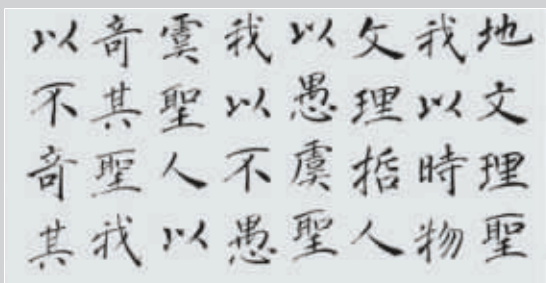 地文理聖
我以時物
文理哲人
以愚虞聖
我以不愚
虞聖人以
奇其聖我
以不奇其